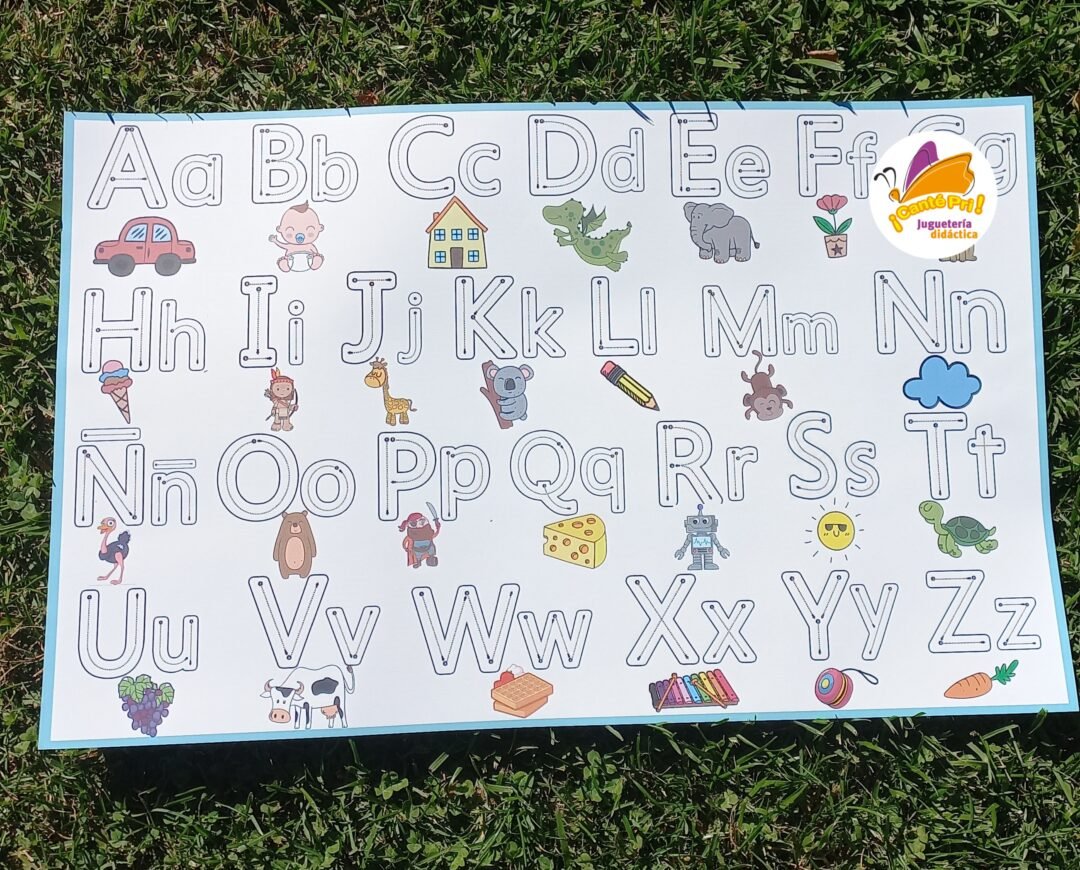 Aa Bb Cc Dd Ee Ff Gg
¡Canté Pri!
Juguetería
didáctica
Hh Ii Jj Kk Ll Mm Nn
Ññ Oo Pp Qq Rr Ss Tt
Uu Vv Ww Xx Yy Zz